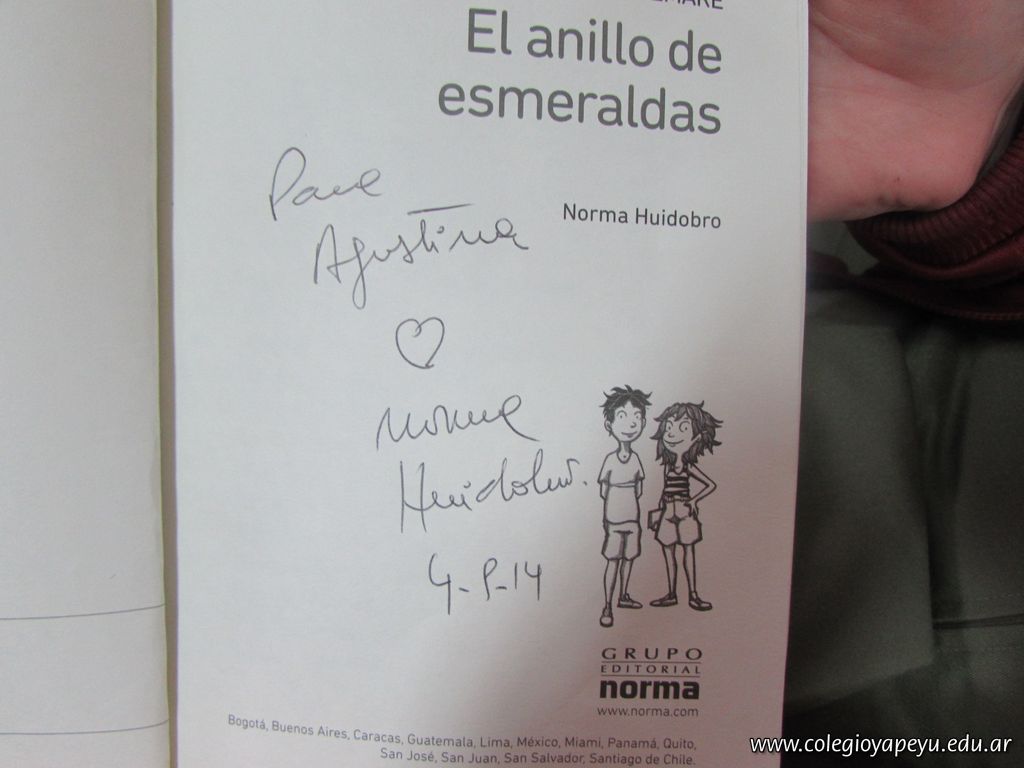 El anillo de
esmeraldas
Norma Huidobro
Para
Agustina
Norma
Huidobro.
GRUPO
EDITORIAL
norma
www.norma.com
Bogotá, Buenos Aires, Caracas, Guatemala, Lima, México, Miami, Panamá, Quito,
San José, San Juan, San Salvador, Santiago de Chile.
www.colegioyapeyu.edu.ar